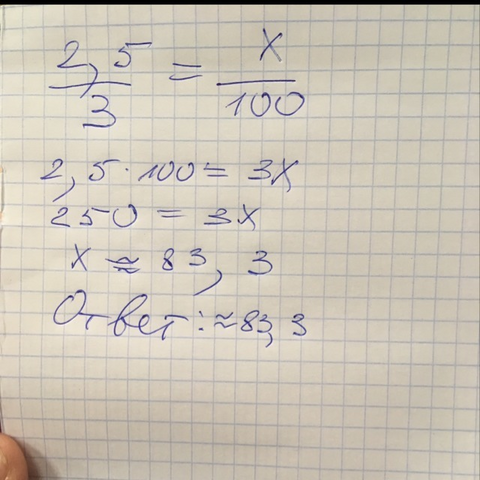 2,5/3 = X/100
2,5 · 100 = 3X
250 = 3X
X ≈ 83,3
Ответ: ≈ 83,3